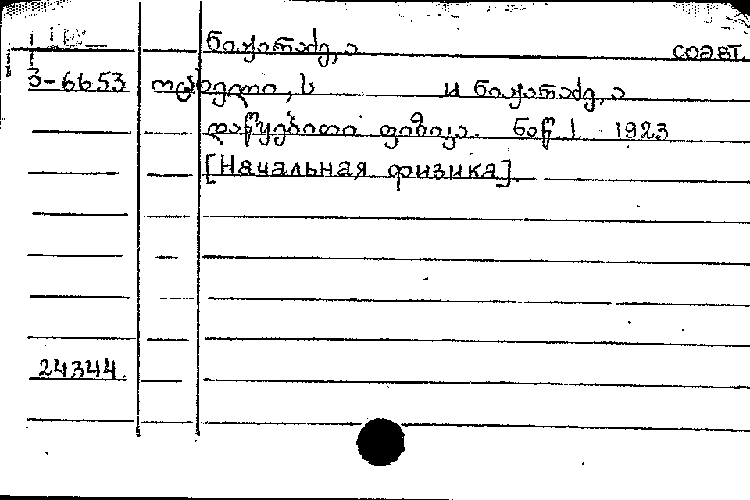 ნიჟარაძე, ა соавт.
3-6653 ოცხელი, ს и ნიჟარაძე, ა
დაწყებითი ფიზიკა. ნაწ 1 1923
[Начальная физика].
24344.